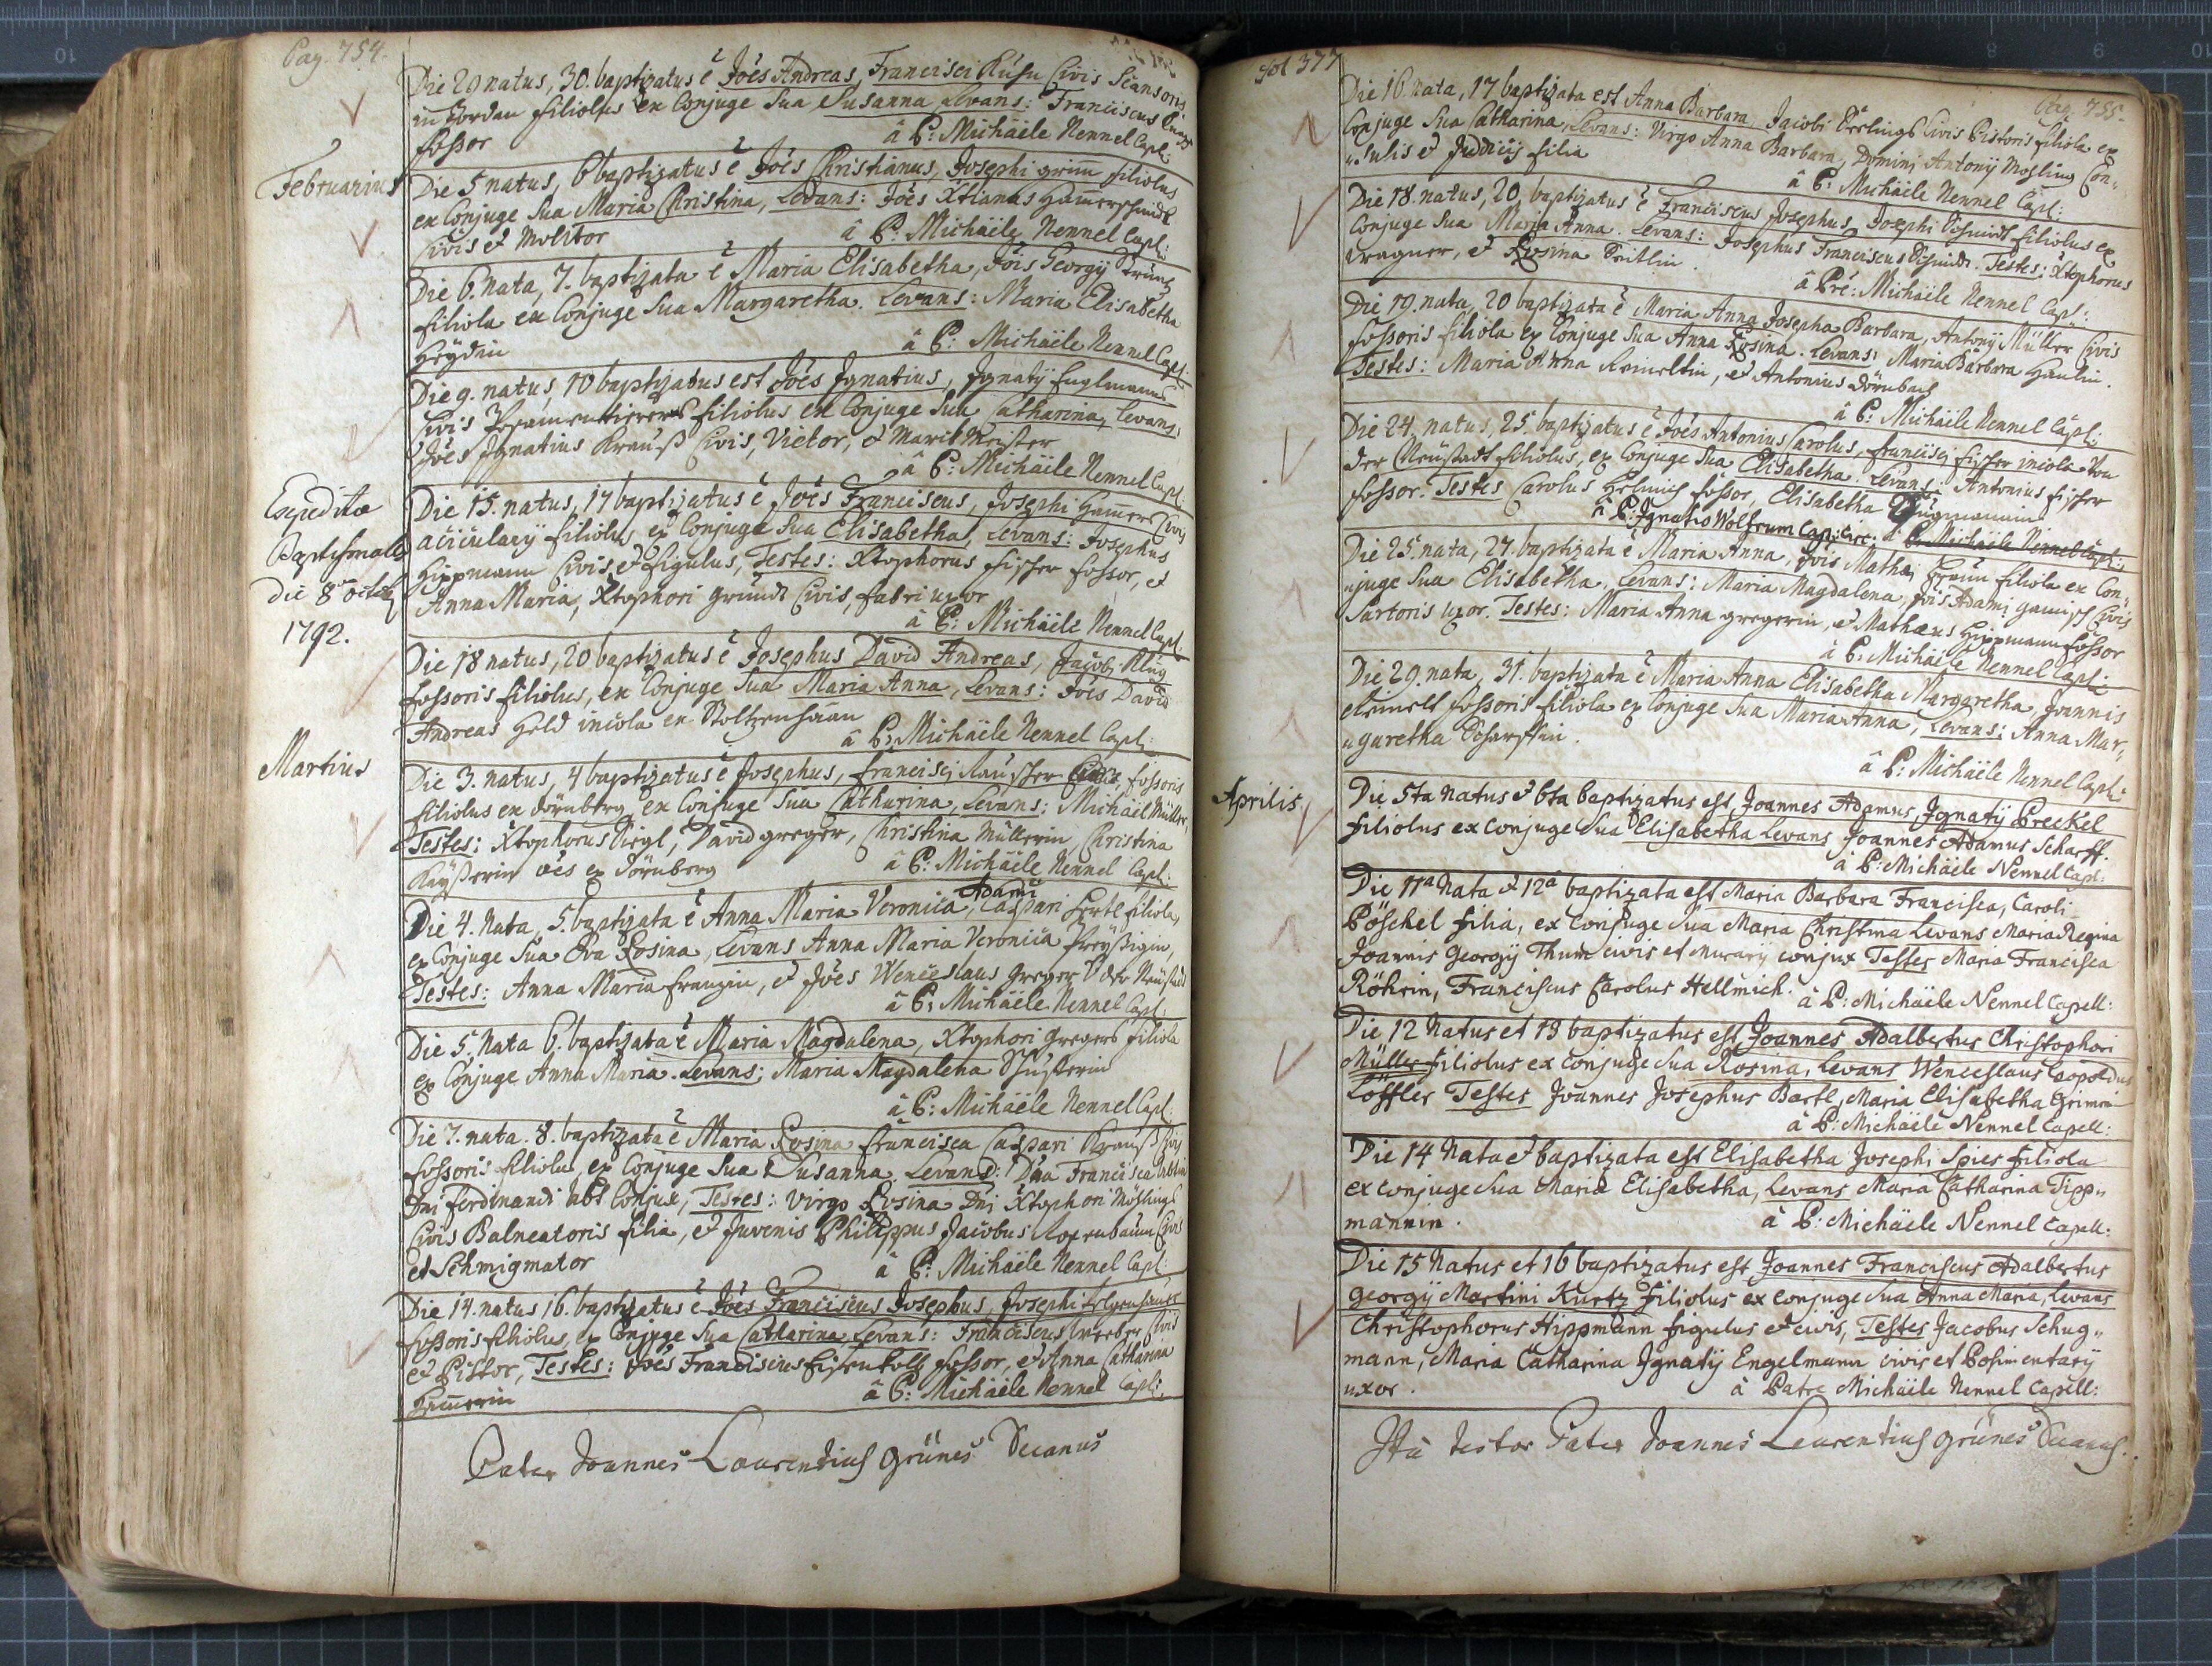 Pag. 754.
Die 29 natus, 30. baptizatus ê Joês Andreas, Francisci Civis Scansoris
in filiolus ex Conjuge Sua Susanna Levans: Franciscus
fossor
â P: Michäele Nennel Capl:
Februarius
Die 5 natus, 6 baptizatus ê Joês Christianus, Josephi grim̄ filiolus
ex Conjuge Sua Maria Christina, Levans: Joês Xtianus Ham̄erschmidt
Civis et Molitor
â P: Michäele Nennel Capl:
Die 6. Nata, 7. baptizata ê Maria Elisabetha, Jôis Georgij
filiola ex Conjuge Sua Margaretha. Levans: Maria Elisabetha
Heÿdin
â P: Michäele Nennel Capl:
Die 9. natus, 10 baptizatus est Joês Ignatius, Ignatij Englmanns
Civis Posamentierers filiolus ex Conjuge Sua Catharina, Levans:
Joês Ignatius Krauß Civis, Victor, et Marckt Meister
â P: Michäele Nennel Capl:
Expeditæ
Baptismales
die 8 octob
1792.
Die 15. natus, 17 baptizatus ê Joês Franciscus, Josephi Hamer Civis
acicularij filiolus ex Conjuge Sua Elisabetha, Levans: Josephus
Hippmann Civis et figulus, Testes: Xtophorus fisher fossor, et
Anna Maria, Xtophori gründt Civis, fabri uxor
â P: Michäele Nennel Capl:
Die 18 natus, 20 baptizatus ê Josephus David Andreas, Jacobi Klug
fossoris filiolus, ex Conjuge Sua Maria Anna, Levans: Joês David
Andreas Held incola ex Stoltzenhaan
â P: Michäele Nennel Capl:
Martius
Die 3. natus, 4 baptizatus ê Josephus, francisci fossoris
filiolus ex dörnberg ex Conjuge Sua Catharina, Levans: Michael Müller,
Testes: Xtophorus Siegl, David greger, Christina Müllerin, Christina
Kaÿßerin oês ex Dörnberg
â P: Michäele Nennel Capl:
Adami
Die 4. Nata, 5. baptizata ê Anna Maria Veronica, Caspari filiola,
ex Conjuge Sua Eva Rosina, Levans Anna Maria Veronica Preÿßigin,
Testes: Anna Maria franzin, et Joês Wenceslaus Greger V der Neüstad
â P: Michäele Nennel Capl:
Die 5. Nata 6. baptizata ê Maria Magdalena, Xtophori Gregers filiola
ex Conjuge Anna Maria. Levans: Maria Magdalena Schüsterin
â P: Michäele Nennel Capl:
Die 7. nata. 8. baptizata ê Maria Rosina francisca Caspari Krauß Civis
fossoris filiola, ex Conjuge Sua Susanna. Levans: Dña Francisca
Dni ferdinandi Abt Conjux, Testes: Virgo Rosina Dni Xtophori Mösling
Civis Balneatoris filia, et Juvenis Philippus Jacobus Civis
et Schmigmator
â P: Michäele Nennel Capl:
Die 14. natus 16. baptizatus ê Joês Franciscus Josephus, Josephi
fossoris filiolus, ex Conjuge Sua Catharina Levans: Franciscus Weeber Civis
et Pistor, Testes: Joês Franciscus Eisenkolb fossor, et Anna Catharina
Ham̄erin
â P: Michäele Nennel Capl:
Pater Joannes Laurentius Grünes Decanus
fol 377
Pag. 755.
Die 16. Nata, 17 baptizata est Anna Barbara, Jacobi Civis Pistoris filiola ex
Conjuge Sua Catharina, Levans: Virgo Anna Barbara, Domini Antonij Mösling Con"
"Sulis et Judicij filia
â P: Michäele Nennel Capl:
Die 18. natus, 20. baptizatus ê Franciscus Josephus, Josephi Schmidt filiolus ex
Conjuge Sua Maria Anna. Levans: Josephus Franciscus Schmidt. Testes: Xtophorus
Wagner, et Rosina Seitlin.
â Pre: Michäele Nennel Capl:
Die 19. nata, 20 baptizata ê Maria Anna Josepha Barbara, Antonij Müller Civis
fossoris filiola ex Conjuge Sua Anna Rosina. Levans: Maria Barbara Haulin.
Testes: Maria Anna Reineltin, et Antonius dörnbach
â P: Michäele Nennel Capl:
Die 24. natus, 25. baptizatus ê Joês Antonius Carolus, francisci fisher incola Von
der Neüstadt filiolus, ex Conjuge Sua Elisabetha. Levans: Antonius fisher
fossor. Testes Carolus Helmich fossor, Elisabetha
â P: Ignatio Wolfrum Cap: Circ: â P: Michäele Nennel Capl:
Die 25. nata, 27. baptizata ê Maria Anna, Jôis Mathaj Braun filiola ex Con"
"juge Sua Elisabetha, Levans: Maria Magdalena, Jôis Adami Civis
Sartoris uxor. Testes: Maria Anna gregerin, et Mathæus Hippmann fossor
â P: Michäele Nennel Capl:
Die 29. nata, 31. baptizata ê Maria Anna Elisabetha Margaretha, Joannis
Reinelt fossoris filiola ex Conjuge Sua Maria Anna, Levans: Anna Mar"
"garetha Scharffin.
â P: Michäele Nennel Capl:
Aprilis
Die 5ta Natus et 6ta baptizatus est, Joannes Adamus Ignatij Preckel
filiolus ex conjuge Sua Elisabetha Levans Joannes Adamus Scharff.
â P: Michäele Nennel Capl:
Die 11ª Nata et 12ª baptizata est Maria Barbara Francisca, Caroli
Pöschel filia, ex Conjuge Sua Maria Christina Levans Maria Regina
Joannis Georgij Thum civis et Murarij conjux Testes Maria Francisca
Röhrin, Franciscus Carolus Hellmich.
â P: Michäele Nennel Capell:
Die 12 Natus et 13 baptizatus est Joannes Adalbertus Christophori
Müller filiolus ex conjuge Sua Rosina, Levans Wenceslaus Leopoldus
Löffler Testes Joannes Josephus Bartl, Maria Elisabetha Grimin
â P: Michäele Nennel Capell:
Die 14 Nata et baptizata est Elisabetha Josephi Spies filiola
ex conjuge Sua Maria Elisabetha, Levans Maria Catharina Tipp"
mannin.
â P: Michäele Nennel Capell:
Die 15 Natus et 16 baptizatus est Joannes Franciscus Adalbertus
Georgij Martini Kurtz filiolus ex conjuge Sua Anna Maria, Levans
Christophorus Hippmann figulus et civis, Testes Jacobus Schug"
mann, Maria Catharina Ignatij Engelmann civis et Posimentarij
uxor.
â Patre Michäele Nennel Capell:
Ita testor Pater Joannes Laurentius Grünes Decanus.